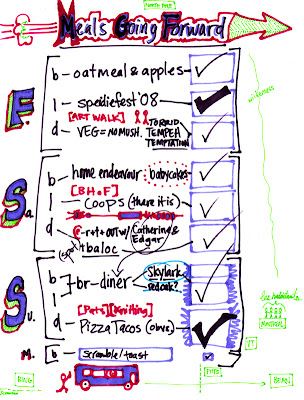 NORTH POLE
Meals Going Forward
F.
b - oatmeal & apples
l - speidiefest '08
[ART WALK]
d - VEG = NOMUSH.
TORRID
TEMPEH
TEMPTATION
wilderness
Sa.
b - home endeavour
babycakes
[BH&F]
l - Coops (there it is)
d - rot + out w/ Catherine & Edgar
(spot) + baloc
Su.
b - diner
Skylark
redoak?
l
[Pats][Knitting]
d - Pizza Tacos (obvi.)
M.
b - scramble/toast
VT
BING
BERN